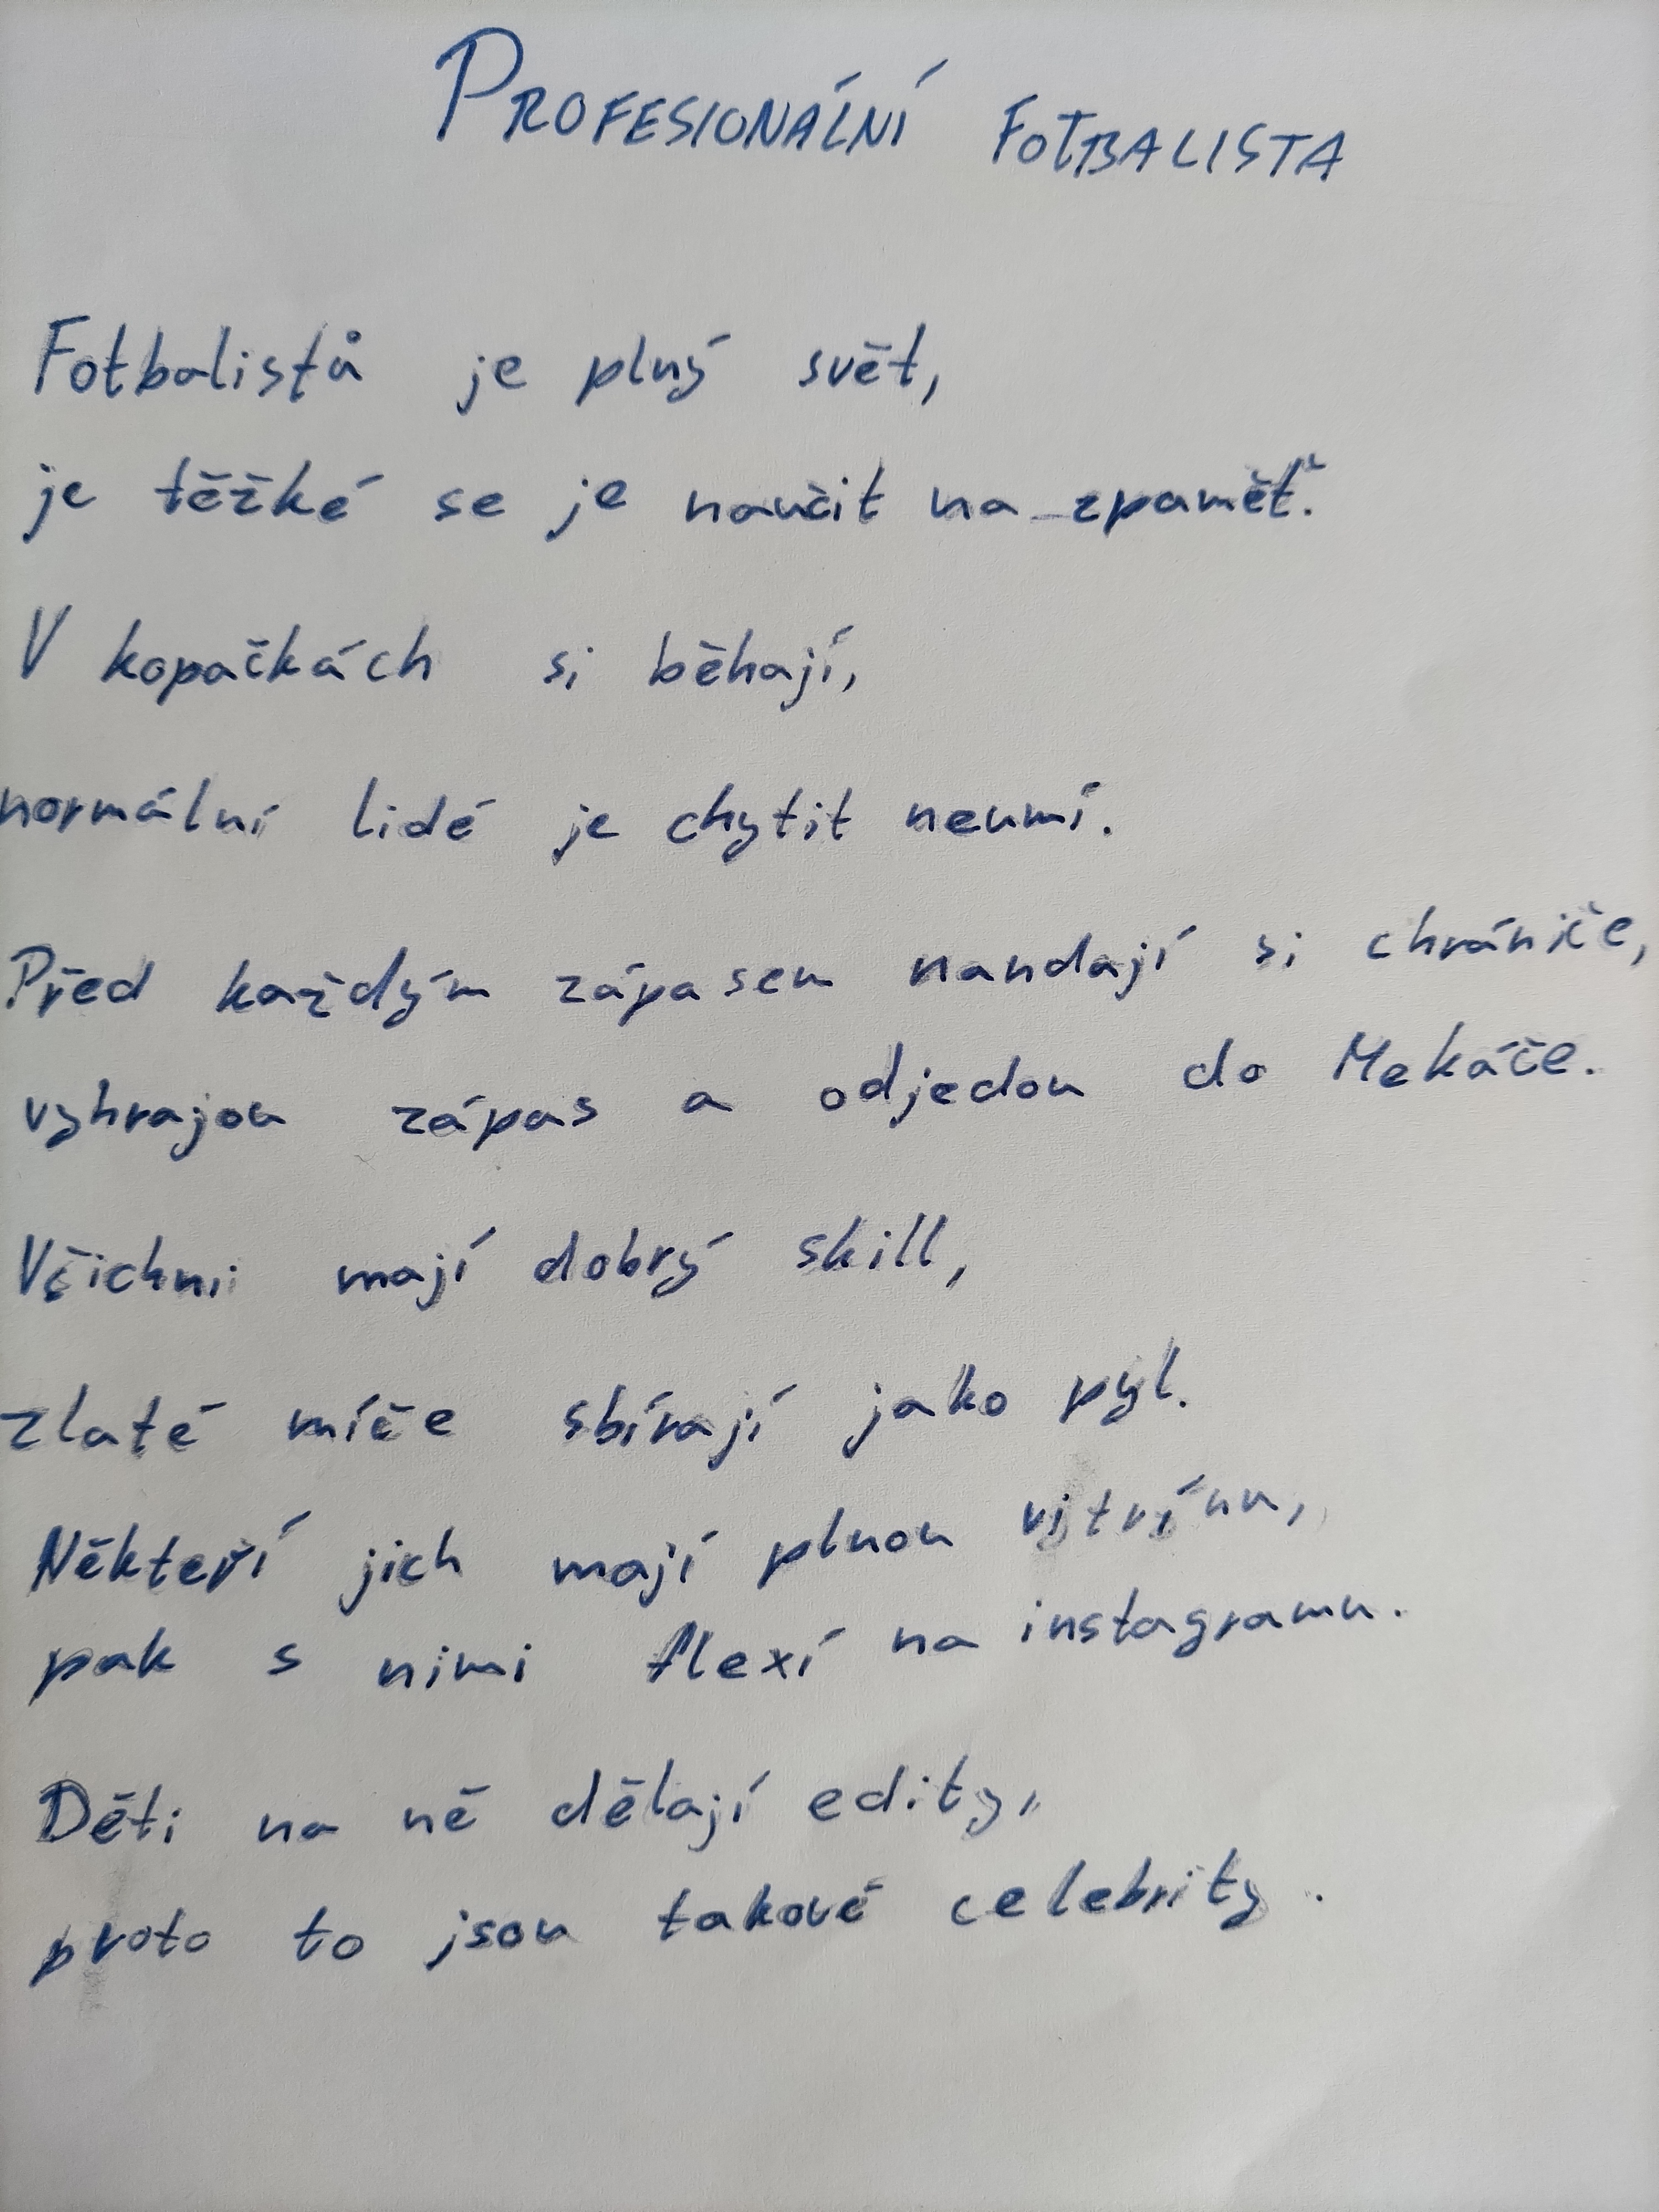 PROFESIONÁLNÍ FOTBALISTA
Fotbalistů je plný svět,
je těžké se je naučit na zpaměť.
V kopačkách si běhají,
normální lidé je chytit neumí.
Před každým zápasem nandají si chrániče,
vyhrajou zápas a odjedou do Mekáče.
Všichni mají dobrý skill,
zlaté míče sbírají jako pyl.
Někteří jich mají plnou vitrínu,
pak s nimi flexí na instagramu.
Děti na ně dělají edity,
proto to jsou takové celebrity.